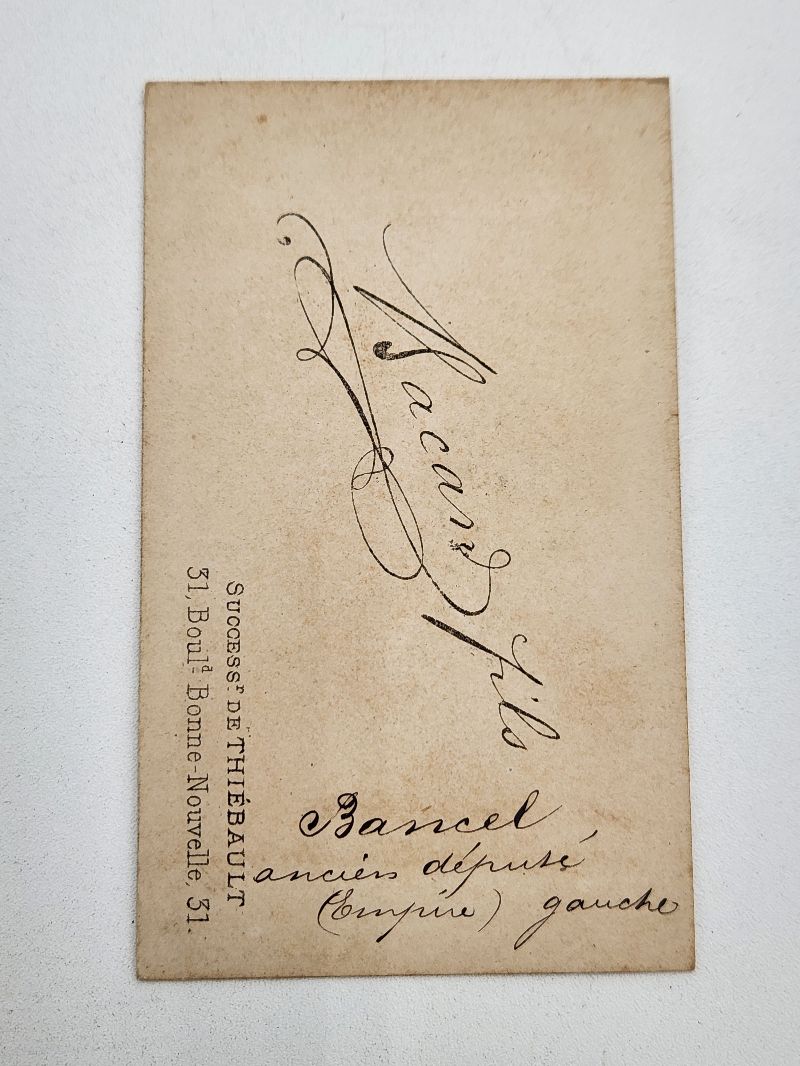 Vacard fils
Success.r DE THIÉBAULT
31, Boul.d Bonne-Nouvelle, 31.
Bancel,
ancien député
(Empire) gauche